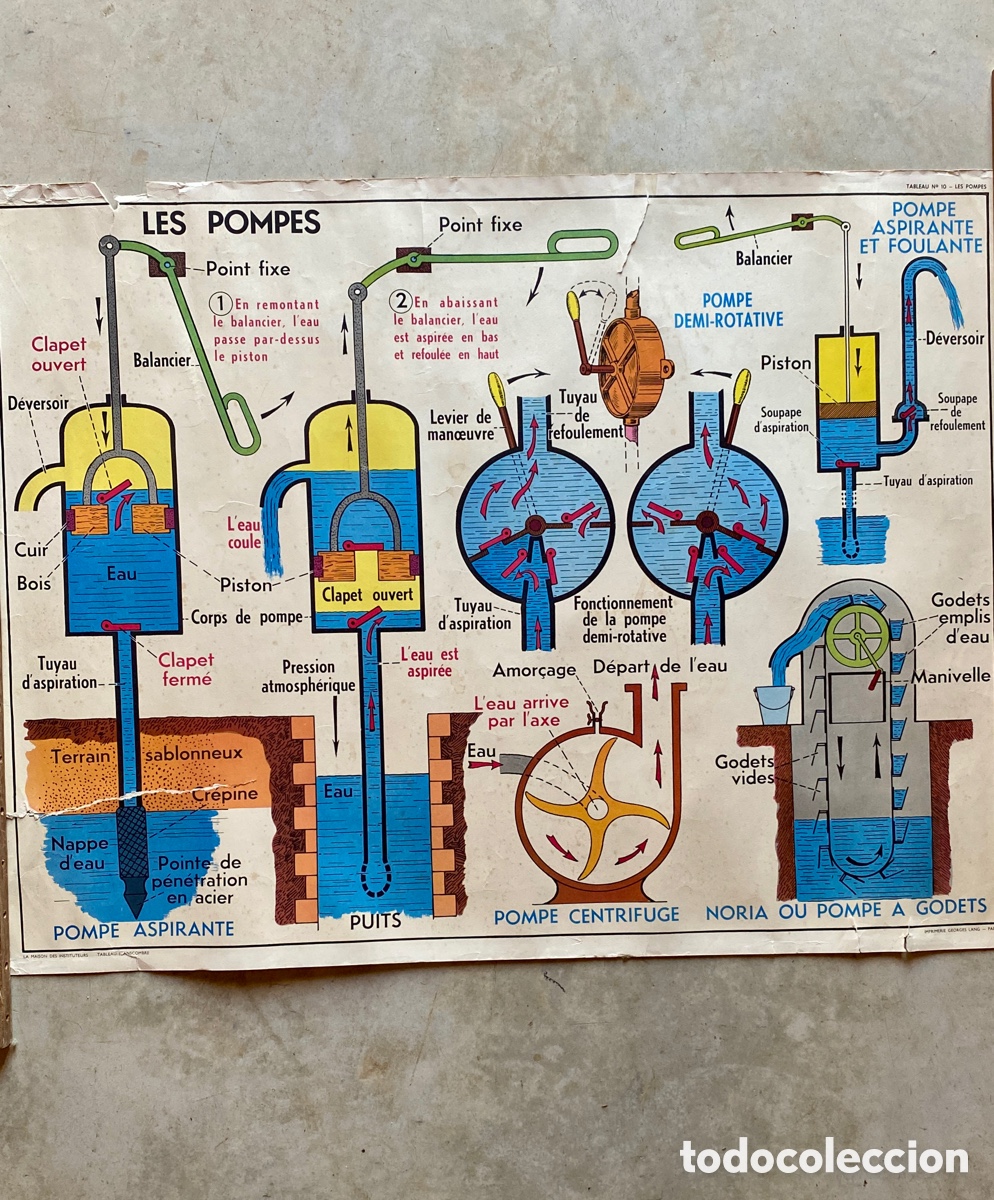 TABLEAU Nº 10 - LES POMPES
LES POMPES
Point fixe
① En remontant
le balancier, l'eau
passe par-dessus
le piston
Clapet
ouvert
Balancier
Déversoir
Cuir
Bois
Eau
Piston
Corps de pompe
Clapet
fermé
Tuyau
d'aspiration
Terrain sablonneux
Crepine
Nappe
d'eau
Pointe de
pénétration
en acier
POMPE ASPIRANTE
Point fixe
② En abaissant
le balancier, l'eau
est aspirée en bas
et refoulée en haut
L'eau
coule
Clapet ouvert
L'eau est
aspirée
Pression
atmosphérique
Eau
PUITS
POMPE
DEMI-ROTATIVE
Levier de
manœuvre
Tuyau
de
refoulement
Tuyau
d'aspiration
Fonctionnement
de la pompe
demi-rotative
POMPE
ASPIRANTE
ET FOULANTE
Balancier
Déversoir
Piston
Soupape
d'aspiration
Soupape
de
refoulement
Tuyau d'aspiration
Amorçage
Départ de l'eau
L'eau arrive
par l'axe
Eau
POMPE CENTRIFUGE
Godets
emplis
d'eau
Manivelle
Godets
vides
NORIA OU POMPE A GODETS
LA MAISON DES INSTITUTEURS
IMPRIMERIE GEORGES LANG
todocoleccion